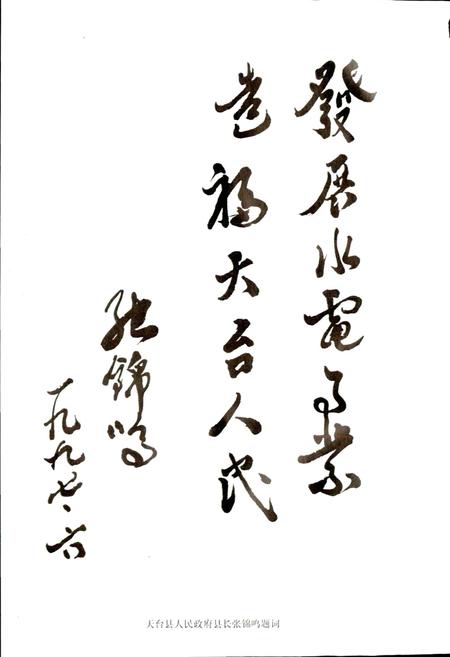 發展水電事業
造福天台人民
张錦鸣
一九九七、六
天台县人民政府县长张锦鸣题词